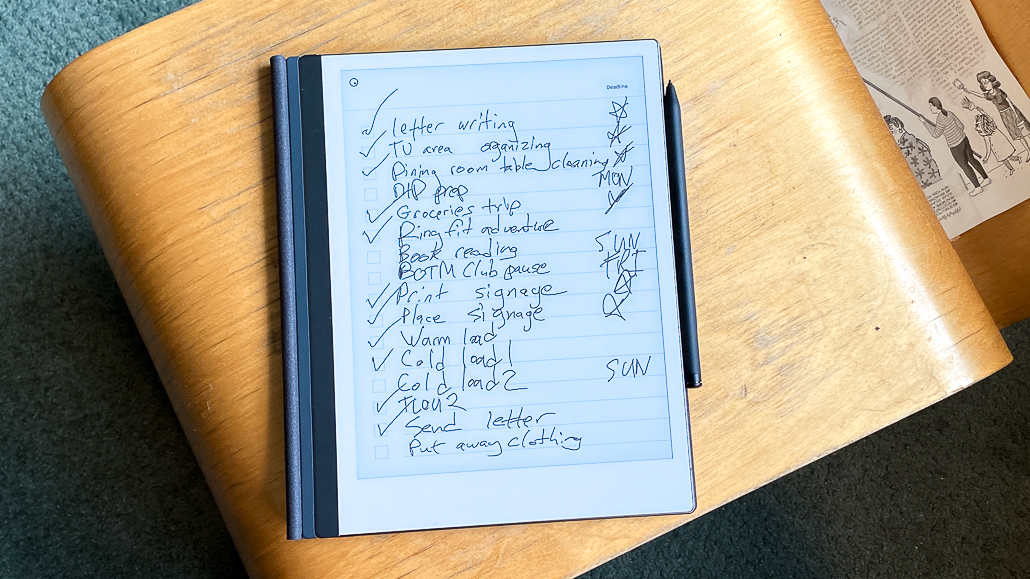 Deadline
letter writing
TV area organizing
Dining room table cleaning
DND prep MON
Groceries trip
Ring fit adventure
Book reading SUN
BOTM Club pause FRI
Print signage
Place signage
Warm load
Cold load 1
Cold load 2 SUN
Send letter
Put away clothing